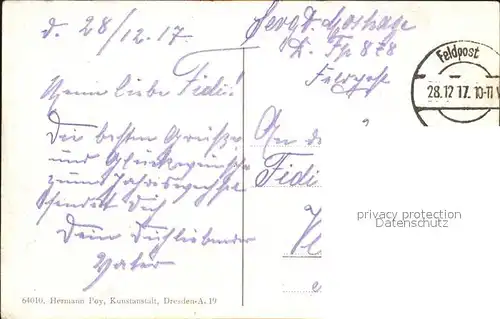 d. 28/12.17.
Sergt.
L. Fp 878
Feldpost
Feldpost
28.12 17. 10-11 V
Meine liebe Fidi!
Die besten Grüße
und Glückwünsche
zum Jahreswechsel
sendet Dich
Dein Dich liebender
Vater
An
Fidi
privacy protection
Datenschutz
64610, Hermann Poy, Kunstanstalt, Dresden-A. 19